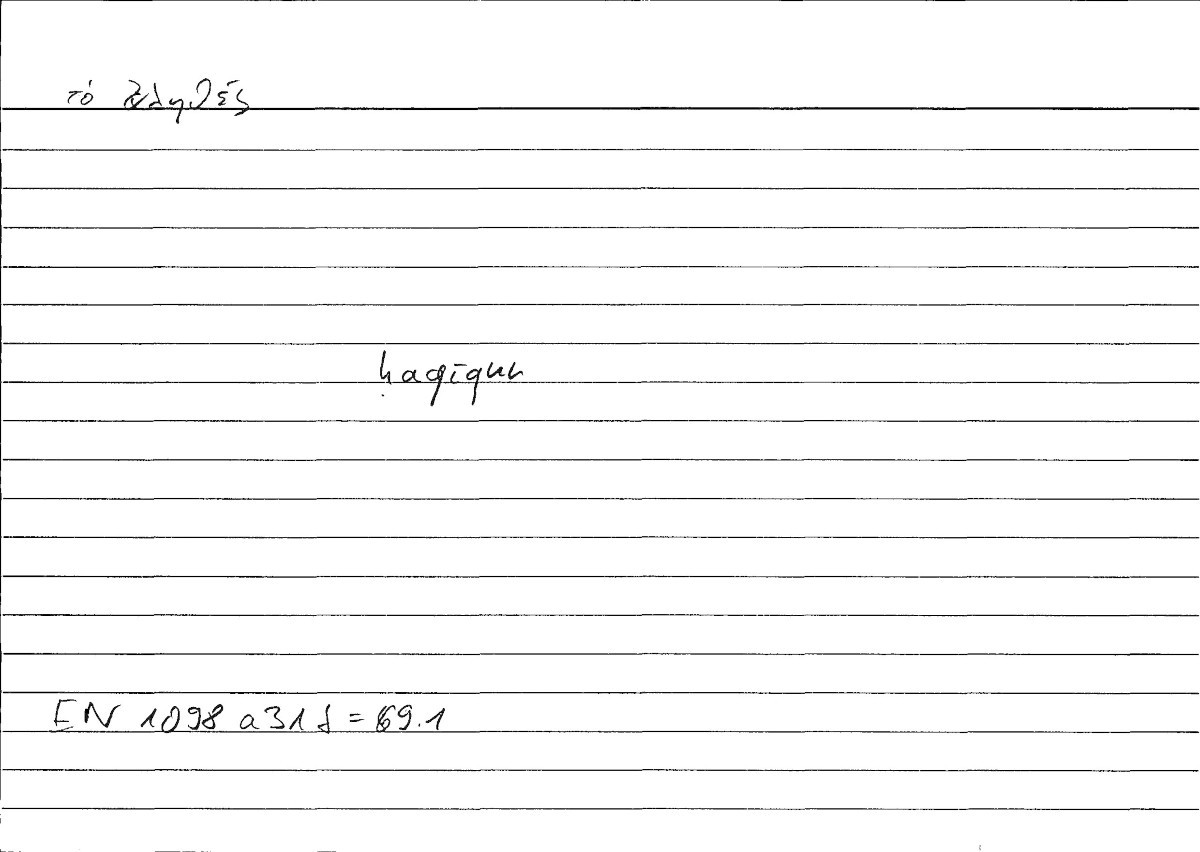 τό ἀληθές
ḥaqīqun
EN 1098 a31f = 69.1